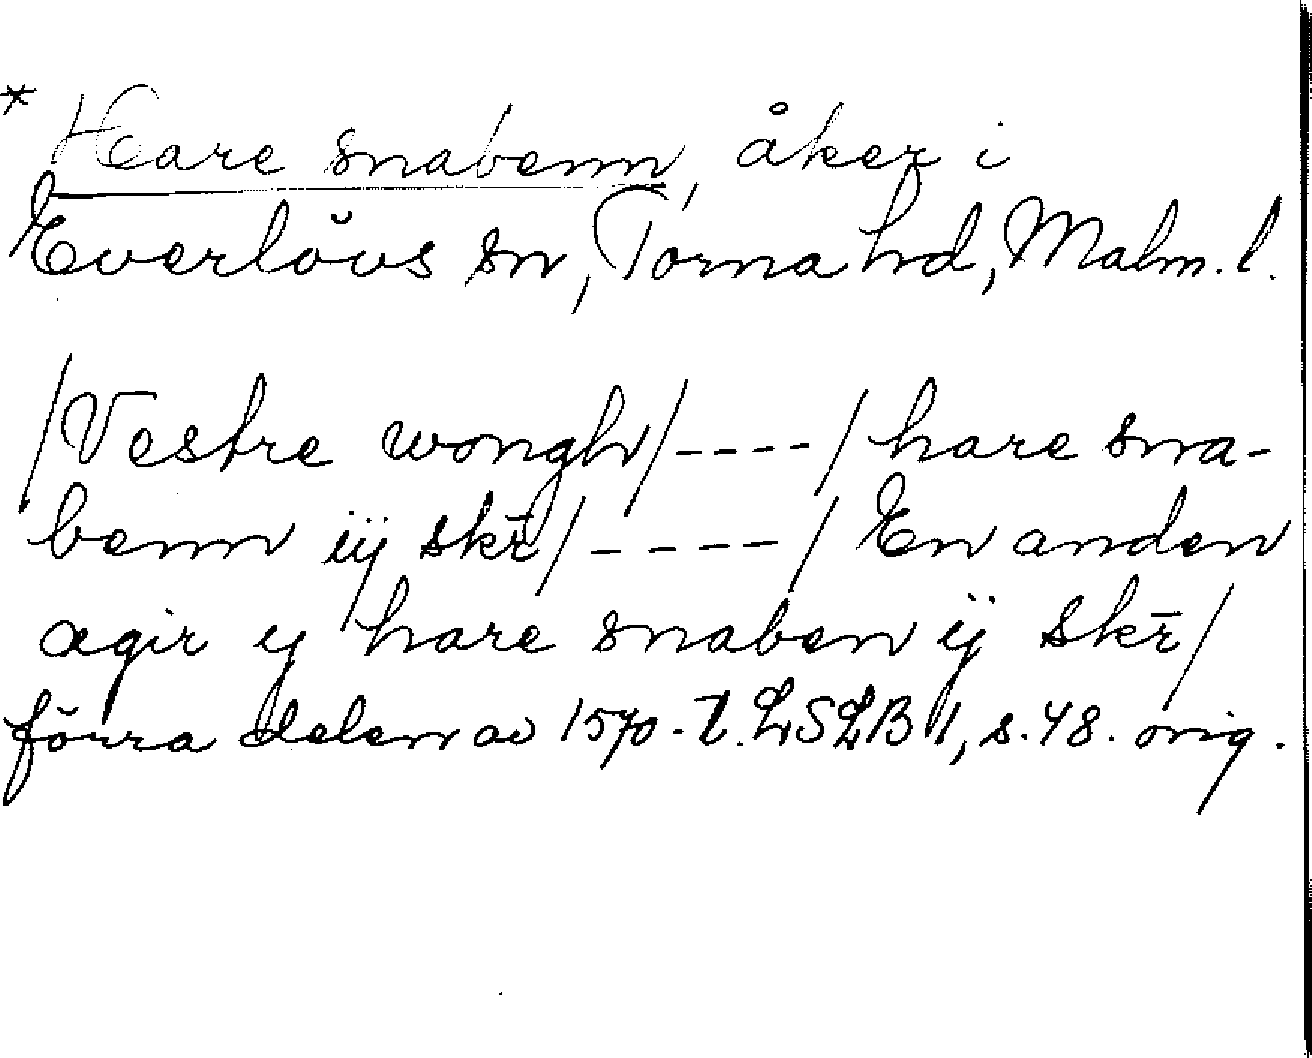 * Hare snabenn, åker i
Everlövs sn, Torna hd, Malm. l.
/Vestre wongh/----/ hare sna-
benn iij skr̄/----/ En anden
agir ij hare snaben ij skr̄/
förra delen av 1570-t. LSLB 1, s. 48. orig.